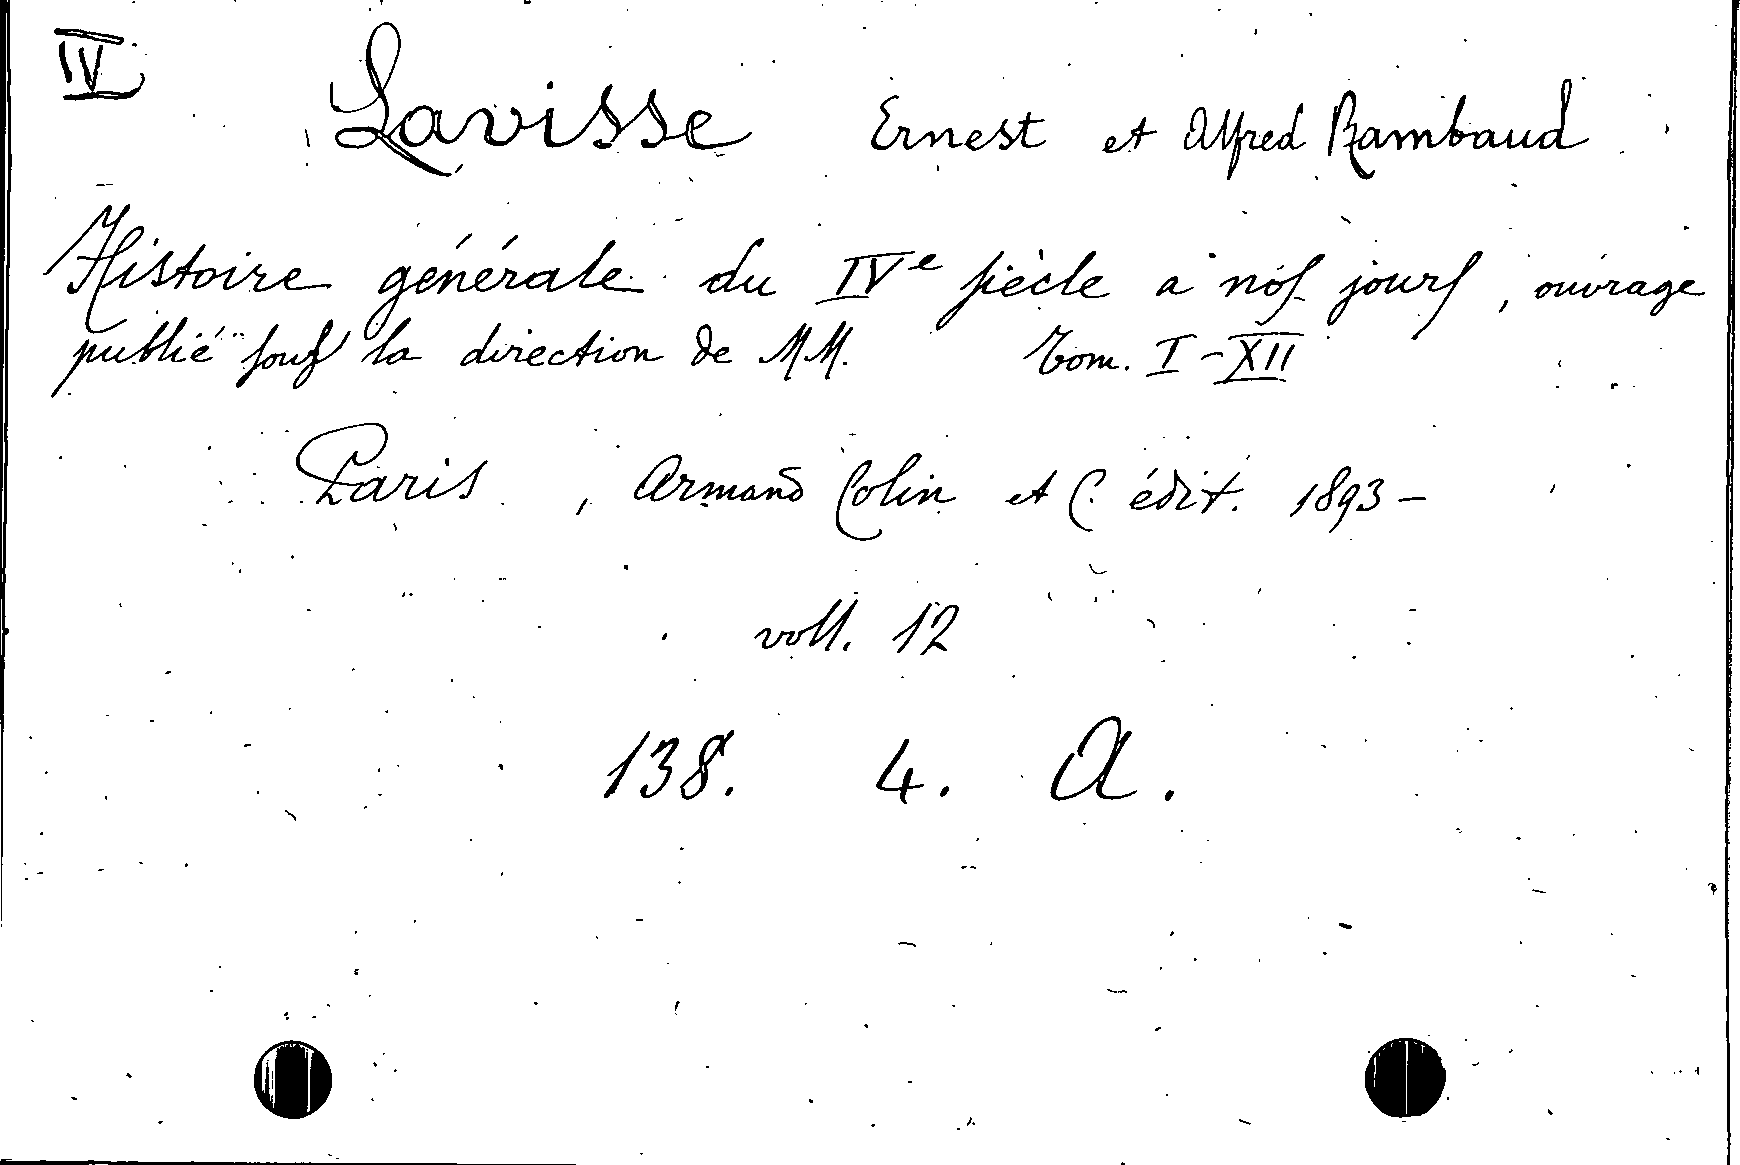 IV
Lavisse Ernest et Alfred Rambaud
Histoire générale du IVe siècle a nos jours, ouvrage
publié sous la direction de MM. Tom. I-XII
Paris, Armand Colin et C. édit. 1893-
voll. 12
138. 4. A.